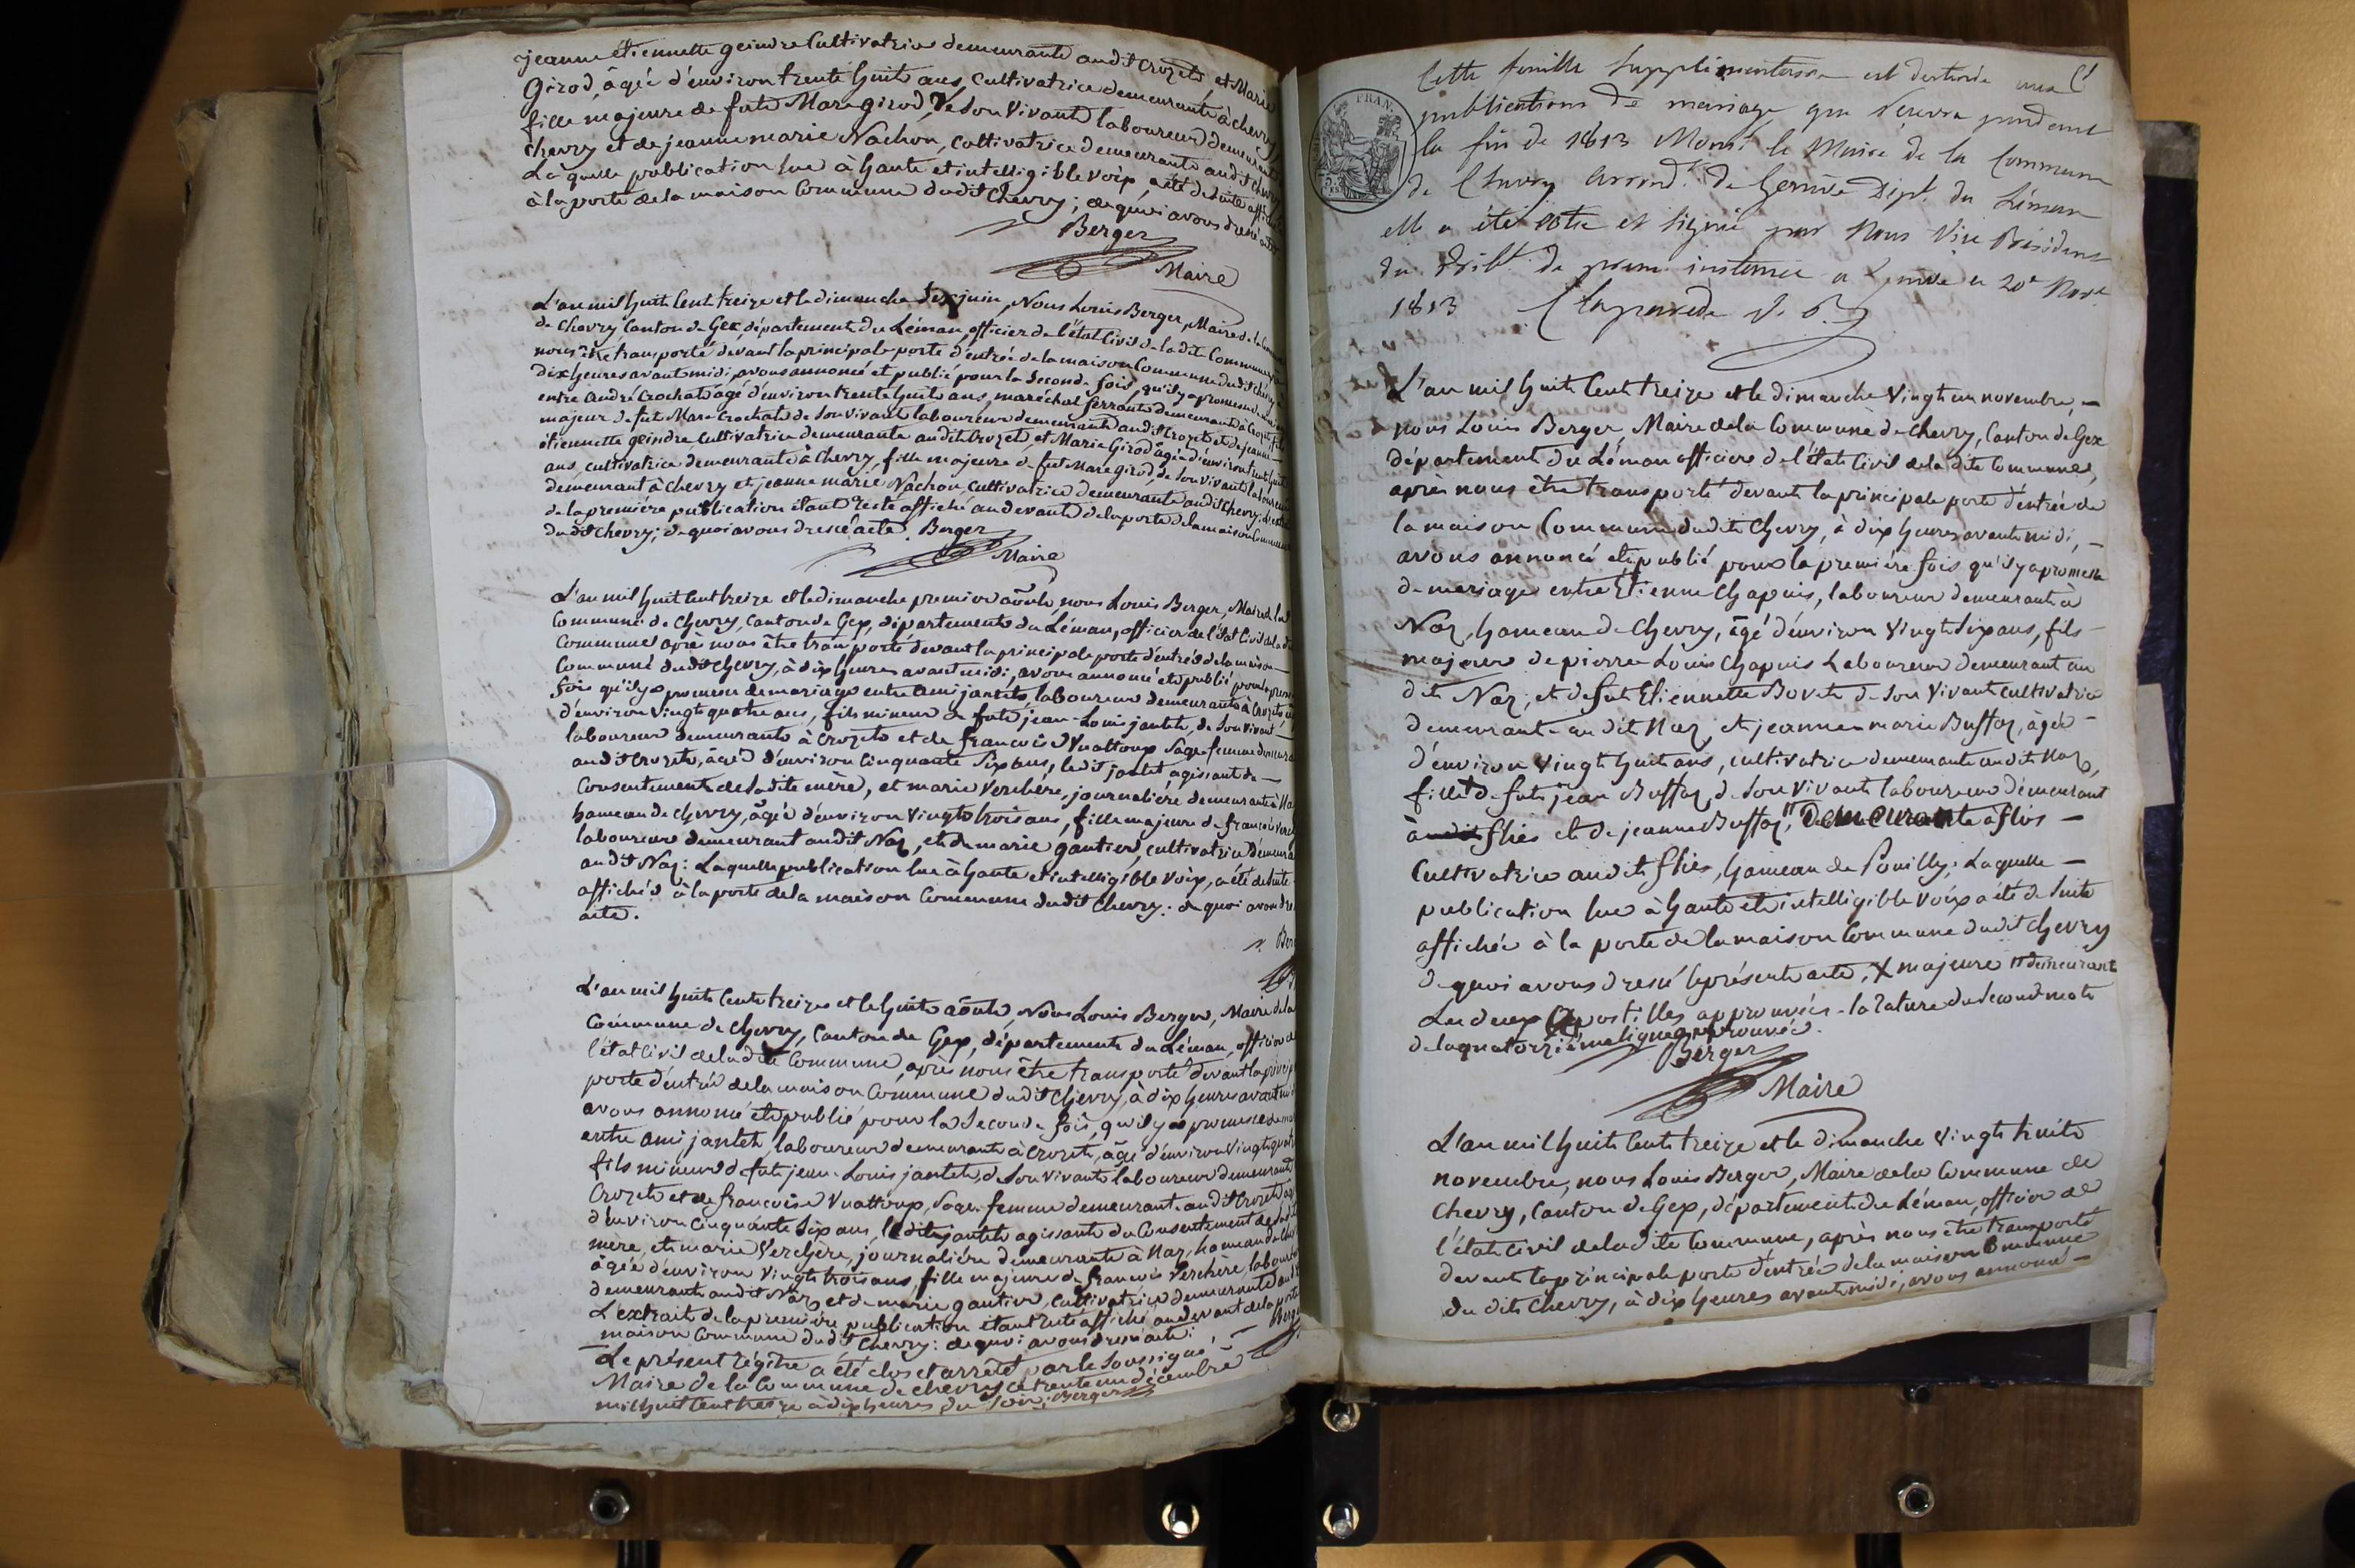 jeanne étiennette geindre Cultivatrice demeurante audit Crozets et Marie
Girod, âgée d'environ trente huits ans, Cultivatrice demeurante à chevry
fille majeure de futs Marc girod, de Son Vivants laboureur demeurant
Chevry et de jeanne marie Nachon, Cultivatrice demeurante audit Chevry
Laquelle publication lue à haute et intelligible voix, a été de suite affichée
à la porte de la maison Commune dudit Chevry; de quoi avons dressé acte
Berger
Maire
L'an mil huit Cent treize et le dimanche six juin, Nous Louis Berger, Maire de la Commune
de Chevry Canton de Gex, département du Léman, officier de l'état Civil de la dite Commune
nous être transporté devant la principale porte d'entrée de la maison Commune dudit Chevry
dix heures avant midi, avons annoncé et publié pour la Seconde fois, qu'il y a promesse de
entre André Crochat âgé d'environ trente huits ans, maréchal ferrants demeurants à Crozet fils
majeur de fut Marc Crochat de Son vivants laboureur demeurants audit Crozets et de jeanne
étiennette geindre Cultivatrice demeurante audit Crozets et Marie Girod âgée d'environ trente huit
ans, cultivatrice demeurante à Chevry, fille majeure de fut Marc girod, de Son vivants laboureur
demeurant à Chevry et jeanne marie Nachon, Cultivatrice demeurante audit Chevry; L'extrait
de la première publication étant resté affiché au devant de la porte de la maison Commune
dudit Chevry; de quoi avons dressé acte. Berger
Maire
L'an mil huit Cent treize et le dimanche premier août, nous Louis Berger, Maire de la
Commune de Chevry, Canton de Gex, département du Léman, officier de l'état Civil de la dite
Commune après nous être transporté devant la principale porte d'entrée de la maison
Commune dudit Chevry, à dix heures avant midi, avons annoncé et publié pour la première
fois qu'il y a promesse de mariage entre Ami jantet, laboureur demeurants à Crozets, âgé
d'environ vingt quatre ans, fils mineur de futs jean-Louis jantet, de Son vivant
laboureur demeurants à Crozets et de françoise Vuattoup Sage-femme demeurante
audit Crozets, âgée d'environ Cinquante Six ans, ledit jantet agissant de
Consentement de ladite mère, et marie Verchère, journalière demeurante à Naz
hameau de Chevry, âgée d'environ Vingts trois ans, fille majeure de françois Verchère
laboureur demeurant audit Naz, et de marie gautier, cultivatrice demeurante
audit Naz: Laquelle publication lue à haute et intelligible Voix, a été de suite
affichée à la porte de la maison Commune dudit Chevry: de quoi avons dressé
acte.
Berger
L'an mil huits Cents treize et le huits août, Nous Louis Berger, Maire de la
Commune de Chevry, Canton de Gex, départements du Léman, officier de
l'état Civil de la dite Commune, après nous être transporté devant la principale
porte d'entrée de la maison Commune dudit Chevry, à dix heures avant midi
avons annoncé et publié pour la Seconde fois, qu'il y a promesse de mariage
entre Ami jantet, laboureur demeurants à Crozets, âgé d'environ Vingt quatre
fils mineur de futs jean-Louis jantet, de Son vivants laboureur demeurants
Crozets et de françoise Vuattoup, Sage-femme demeurant audit Crozet âgée
d'environ Cinquante Six ans, le dit jantet agissants du Consentement de Sadite
mère, et marie Verchère, journalière demeurante à Naz, hameau de Chevry
âgée d'environ Vingts trois ans, fille majeure de françois Verchère, laboureur
demeurants audit Naz, et de marie gautier, Cultivatrice demeurante audit
L'extrait de la première publication étant resté affiché au devant de la porte
maison Commune dudit Chevry: de quoi avons dressé acte: Berger
Le présent régitre a été clos et arrêté par le Soussigné
Maire de la Commune de Chevry ce trente un décembre
mil huit Cent treize à dix heures du Soir; Berger
Cette feuille Supplémentaire est destinée aux
publications de mariage que recevra pendant
la fin de 1813 Mons.r le Maire de la Commune
de Chevry arrond.t de Genève Dép.t du Léman
elle a été cotée et signée par Nous Vice Président
du Trib.l de prem. instance a Genève le 20e Nov.e
1813 Claparede V. P.
FRAN.
L'an mil huits Cents treize et le dimanche Vingt un novembre, —
nous Louis Berger, Maire de la Commune de Chevry, Canton de Gex
départements du Léman officier de l'états Civil de la dite Commune,
après nous être transporté devant la principale porte d'entrée de
la maison Commune dudits Chevry, à dix heures avants midi, —
avons annoncé et publié pour la première fois qu'il y a promesse
de mariage entre Etienne Chapuis, laboureur demeurants a
Naz, hameau de Chevry, âgé d'environ Vingt Six ans, fils —
majeur de pierre Louis Chapuis Laboureur demeurant au
dits Naz, et de fut Etiennette Bovets de Son Vivant cultivatrice
demeurant au dit Naz, et jeanne marie Buffaz, âgée —
d'environ Vingt huit ans, cultivatrice demeurante audits Naz,
fille de futs jean Buffaz, de Son Vivants laboureur demeurant
à audit flies et de jeanne Buffaz, " Demeurante à flies —
Cultivatrice audits flies, hameau de Pouilly; Laquelle —
publication lue à haute et intelligible voix a été de Suite
affichée à la porte de la maison Commune dudit Chevry
de quoi avons dressé le présente acte, X majeure " demeurant
Les deux apostilles approuvées - la rature du Second mots
de la quatorzième ligne approuvée.
Berger
Maire
L'an mil huits Cents treize et le dimanche Vingts huits
novembre, nous Louis Berger, Maire de la Commune de
Chevry, Canton de Gex, départements du Léman, officier de
l'états Civil de la dite Commune, après nous être transporté
devant la principale porte d'entrée de la maison Commune
du dits Chevry, à dix heures avant midi, avons annoncé —